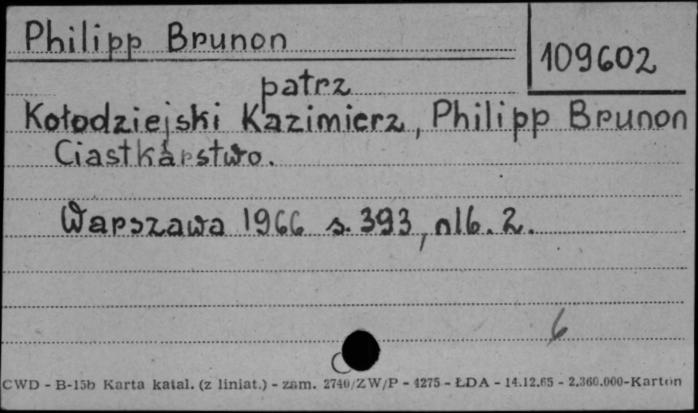 Philipp Brunon
109602
patrz
Kołodziejski Kazimierz, Philipp Brunon
Ciastkarstwo.
Warszawa 1966 s. 393, nlb. 2.
6
CWD - B-15b Karta katal. (z liniat.) - zam. 2740/ZW/P - 4275 - ŁDA - 14.12.65 - 2.360.000-Karton